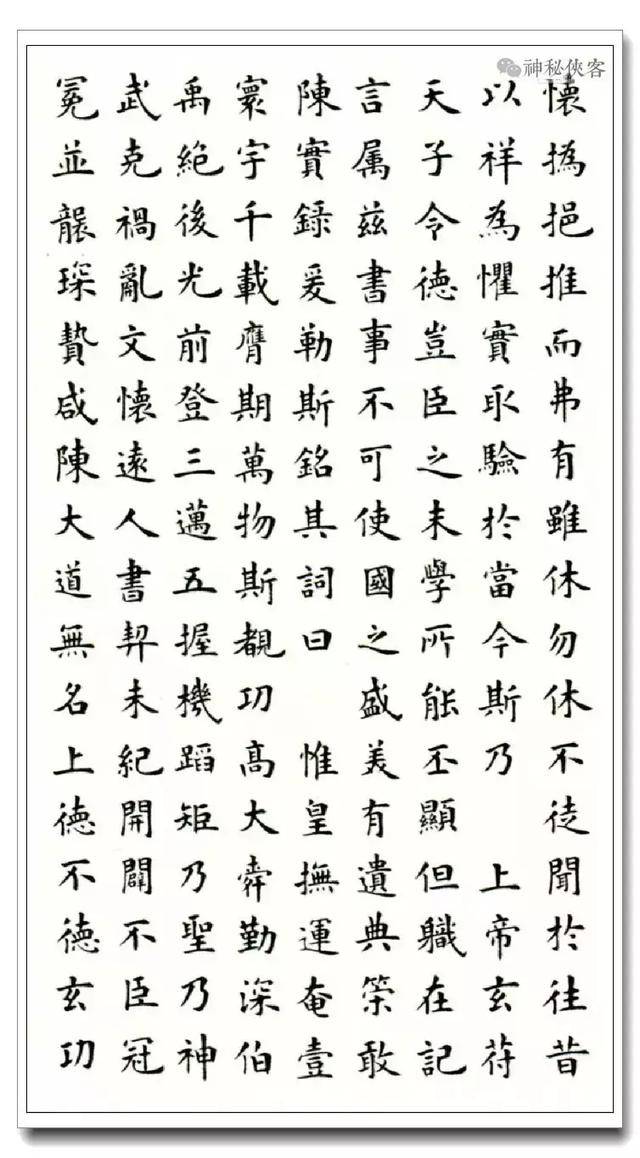 神秘俠客
懷撝挹推而弗有雖休勿休不徒聞於往昔
以祥為懼實取驗於當今斯乃 上帝玄苻
天子令德豈臣之末學所能丕顯但職在記
言属兹書事不可使國之盛美有遺典筞敢
陳實錄爰勒斯銘其詞曰 惟皇撫運奄壹
寰宇千載膺期萬物斯覩功高大舜勤深伯
禹絶後光前登三邁五握機蹈矩乃聖乃神
武克禍亂文懷遠人書契未紀開闢不臣冠
冕並襲琛贄咸陳大道無名上德不德玄功